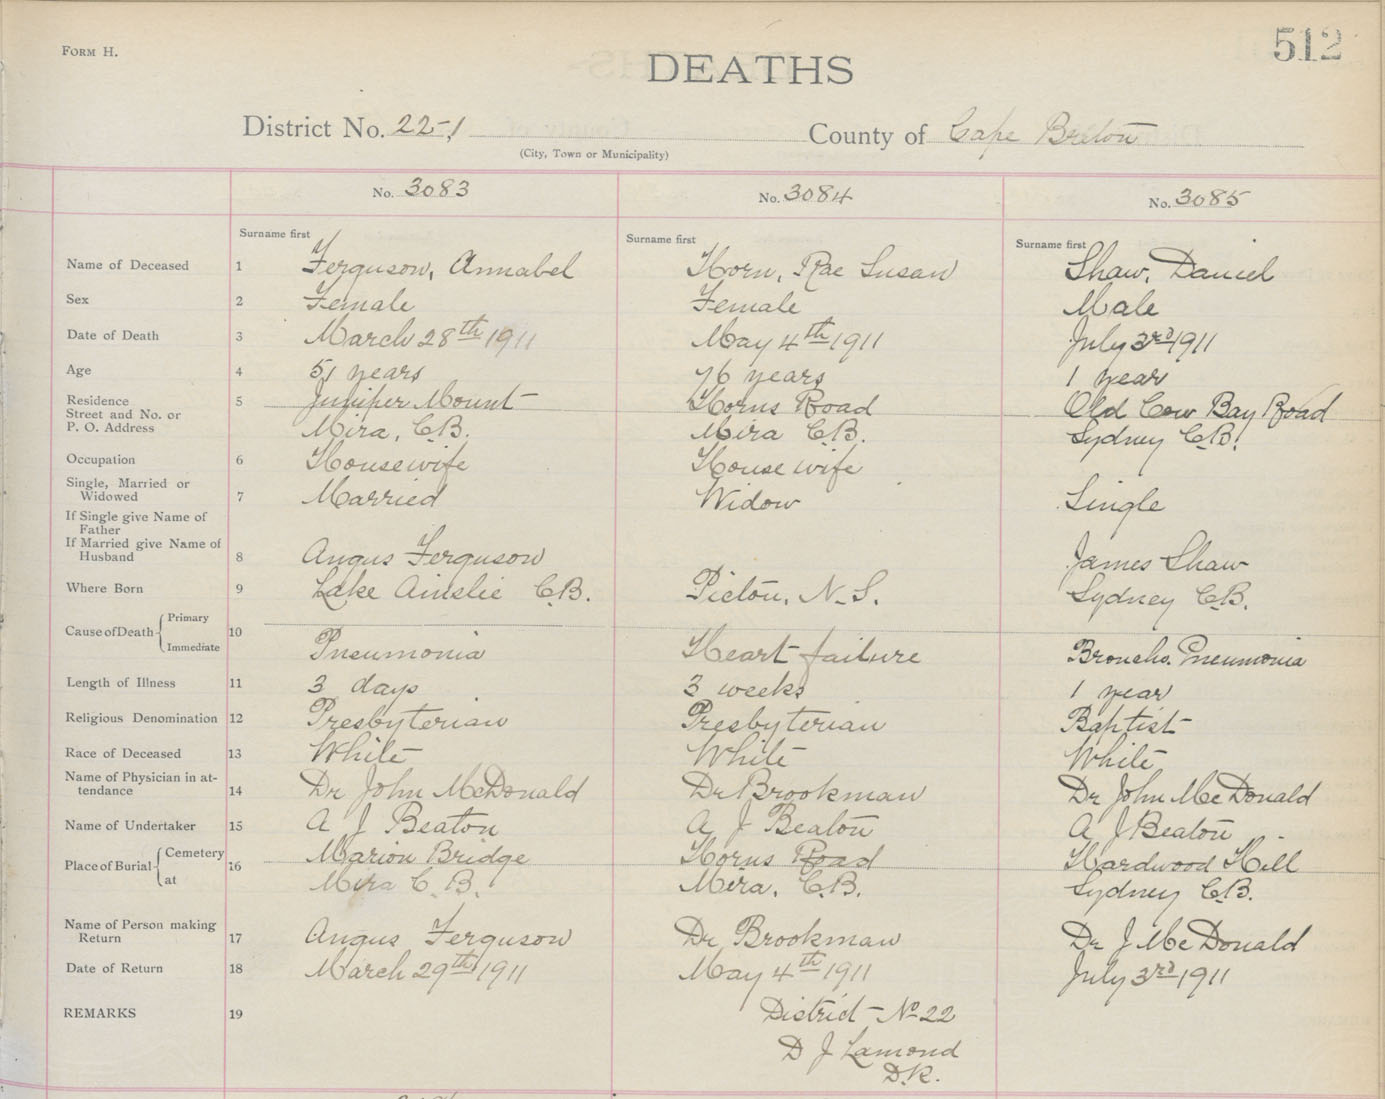 FORM H.
512
DEATHS
District No. 22-1
County of Cape Breton
(City, Town or Municipality)
No. 3083 No. 3084 No. 3085
Surname first Surname first Surname first
Name of Deceased 1 Ferguson, Annabel Horn, Rae Susan Shaw, Daniel
Sex 2 Female Female Male
Date of Death 3 March 28th 1911 May 4th 1911 July 3rd 1911
Age 4 51 years 76 years 1 year
Residence 5 Juniper Mount Horns Road Old Cow Bay Road
Street and No. or
P. O. Address Mira, C.B. Mira C.B. Sydney C.B.
Occupation 6 Housewife House wife
Single, Married or
Widowed 7 Married Widow Single
If Single give Name of
Father
If Married give Name of
Husband 8 Angus Ferguson James Shaw
Where Born 9 Lake Ainslie C.B. Pictou, N.S. Sydney C.B.
Cause of Death Primary
Immediate 10 Pneumonia Heart failure Broncho. Pneumonia
Length of Illness 11 3 days 3 weeks 1 year
Religious Denomination 12 Presbyterian Presbyterian Baptist
Race of Deceased 13 White White White
Name of Physician in at-
tendance 14 Dr John McDonald Dr Brookman Dr John McDonald
Name of Undertaker 15 A J Beaton A J Beaton A J Beaton
Place of Burial Cemetery 16 Marion Bridge Horns Road Hardwood Hill
at Mira C.B. Mira, C.B. Sydney C.B.
Name of Person making
Return 17 Angus Ferguson Dr Brookman Dr J McDonald
Date of Return 18 March 29th 1911 May 4th 1911 July 3rd 1911
REMARKS 19 District No 22
D J Lamond
D.R.